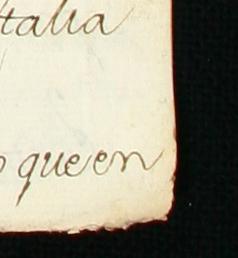 Italia
o queen